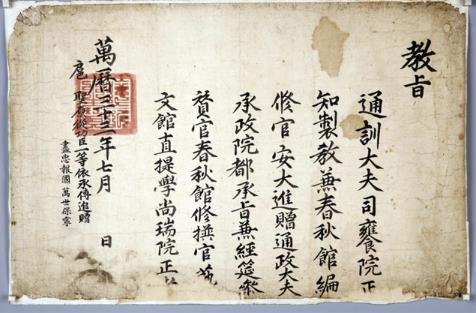 教旨
通訓大夫司饔院正
知製教兼春秋館編
修官安大進贈通政大夫
承政院都承旨兼經筵參
贊官春秋館修撰官藝
文館直提學尚瑞院正者
萬曆三十三年七月 日
扈聖原從功臣一等依承傳追贈
盡忠報國萬世保寧